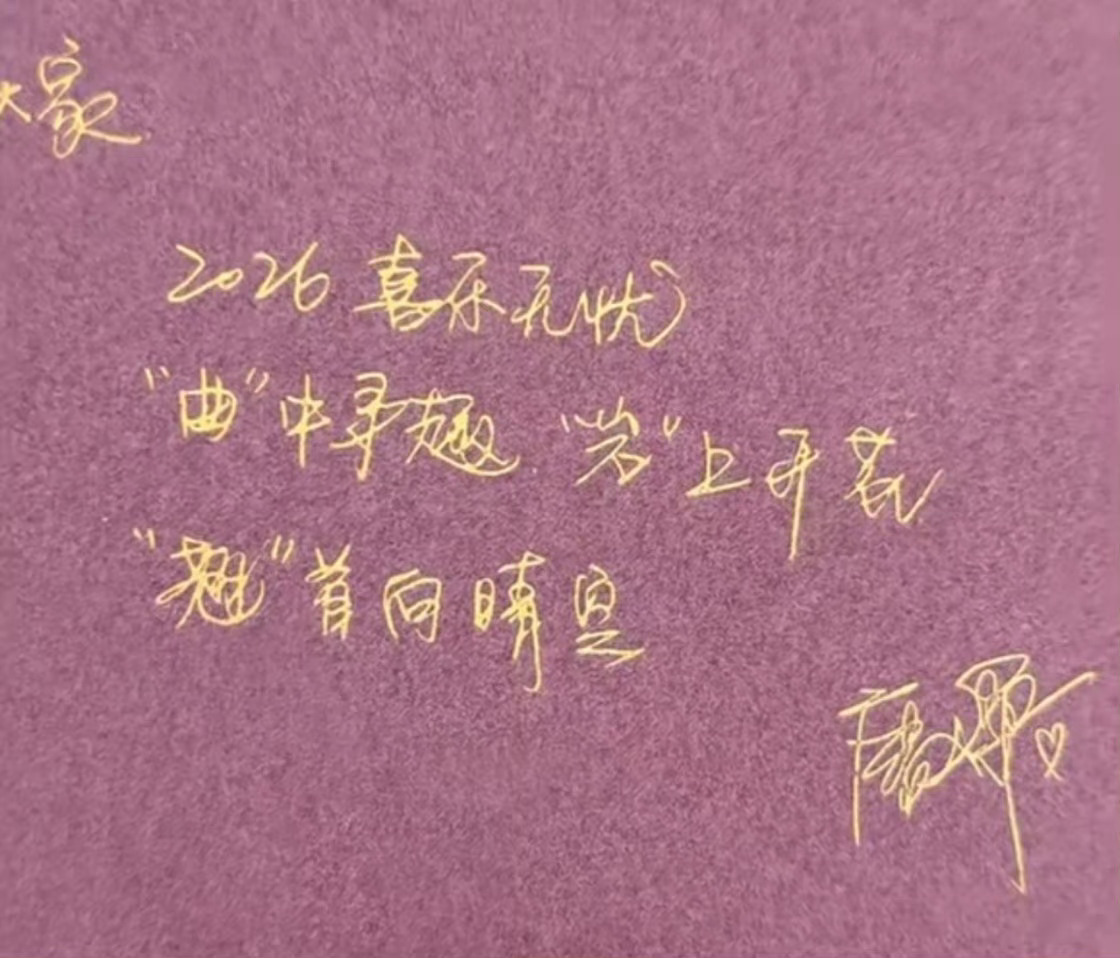 大家
2026 喜乐无忧
"曲"中寻趣 "岩"上开花
"翘"首向晴空
唐嫣♡